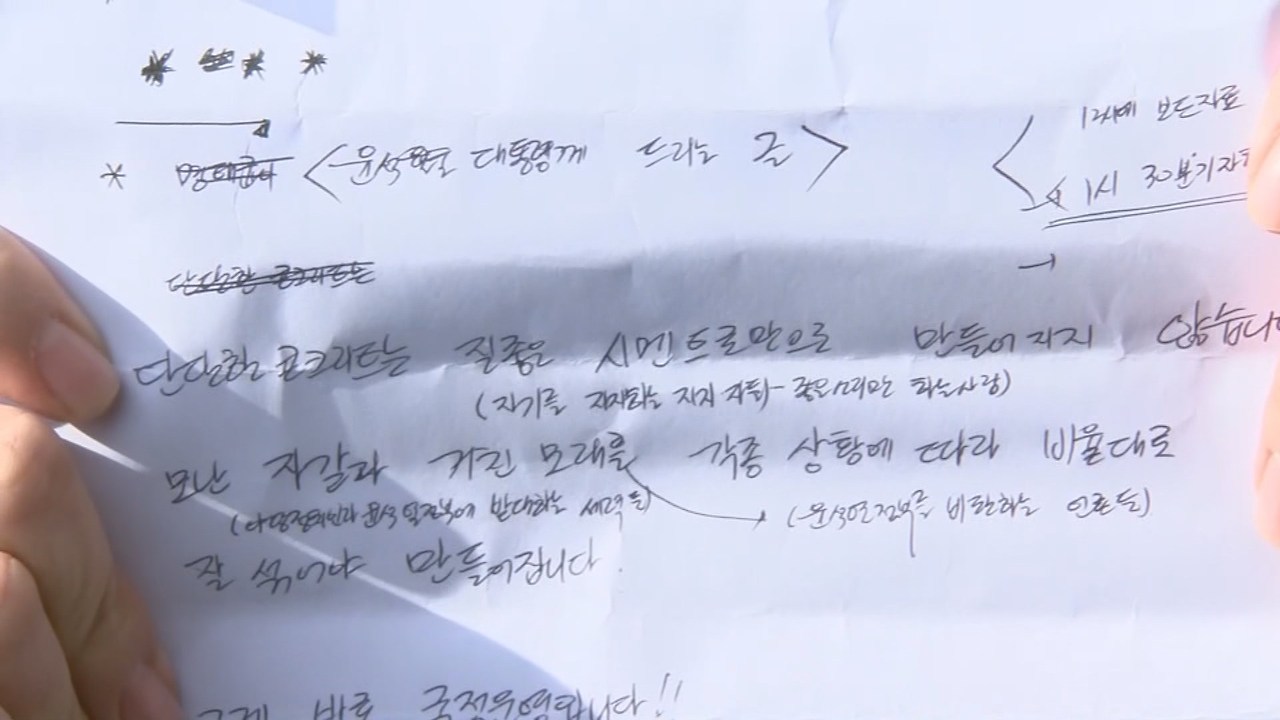 * * *
12시에 보도자료
* <윤석열 대통령께 드리는 글>
1시 30분 기자
단단한 콘크리트는
단단한 콘크리트는 질좋은 시멘트로만으로 만들어 지지 않습니다
(자기를 지지하는 지지 자들 - 좋은 소리만 하는 사람)
모난 자갈과 거친 모래를 각종 상황에 따라 비율대로
(야당정치인과 윤석열 정부에 반대하는 세력들)
(윤석열 정부를 비판하는 언론들)
잘 섞어야 만들어집니다.
그게 바로 국정운영입니다!!